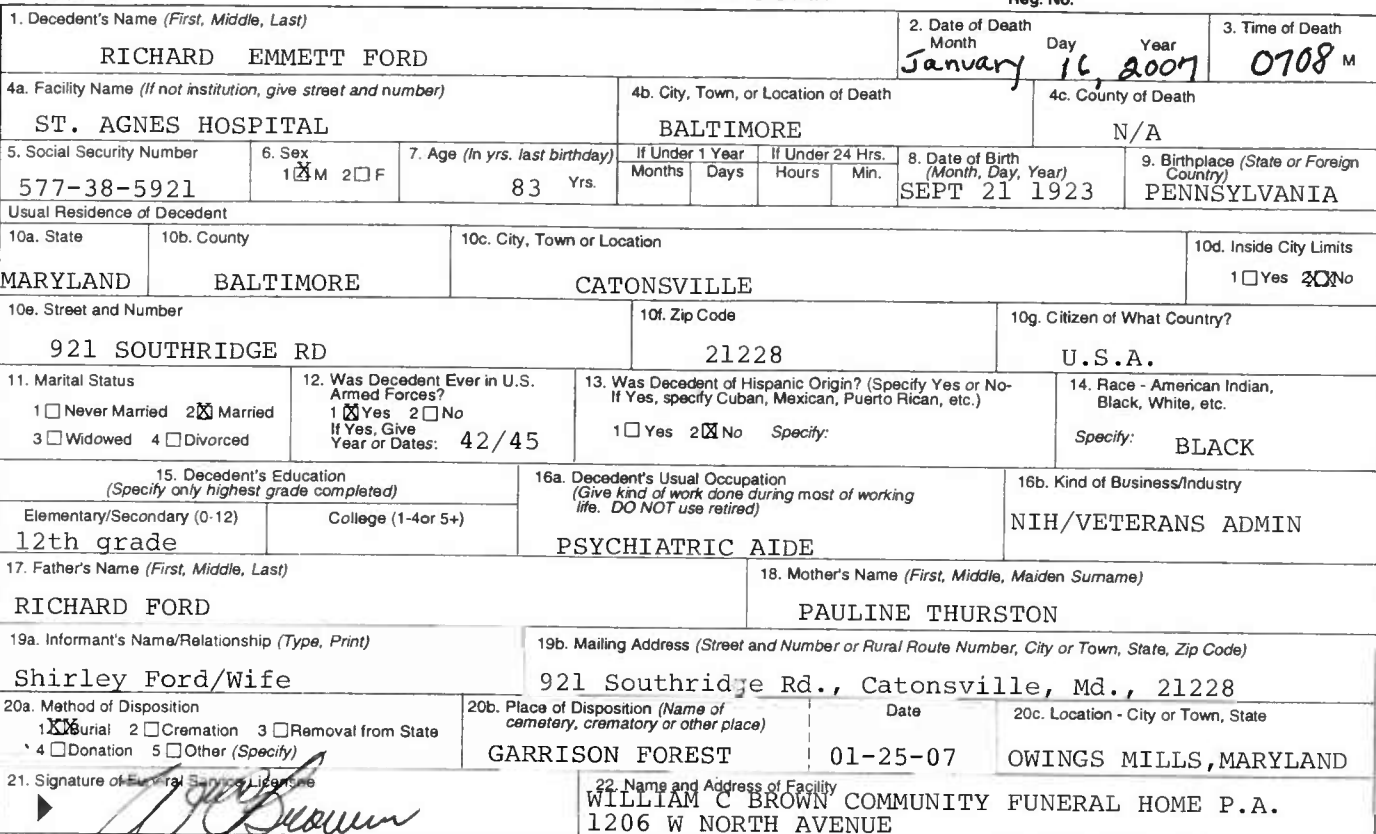 Reg. No.
1. Decedent's Name (First, Middle, Last)
RICHARD EMMETT FORD
2. Date of Death
Month Day Year
January 16, 2007
3. Time of Death
0708 M
4a. Facility Name (If not institution, give street and number)
ST. AGNES HOSPITAL
4b. City, Town, or Location of Death
BALTIMORE
4c. County of Death
N/A
5. Social Security Number
577-38-5921
6. Sex
1☒M 2☐F
7. Age (In yrs. last birthday)
83 Yrs.
If Under 1 Year
Months Days
If Under 24 Hrs.
Hours Min.
8. Date of Birth
(Month, Day, Year)
SEPT 21 1923
9. Birthplace (State or Foreign
Country)
PENNSYLVANIA
Usual Residence of Decedent
10a. State
MARYLAND
10b. County
BALTIMORE
10c. City, Town or Location
CATONSVILLE
10d. Inside City Limits
1☐Yes 2☒No
10e. Street and Number
921 SOUTHRIDGE RD
10f. Zip Code
21228
10g. Citizen of What Country?
U.S.A.
11. Marital Status
1☐Never Married 2☒Married
3☐Widowed 4☐Divorced
12. Was Decedent Ever in U.S.
Armed Forces?
1☒Yes 2☐No
If Yes, Give
Year or Dates: 42/45
13. Was Decedent of Hispanic Origin? (Specify Yes or No-
If Yes, specify Cuban, Mexican, Puerto Rican, etc.)
1☐Yes 2☒No Specify:
14. Race - American Indian,
Black, White, etc.
Specify: BLACK
15. Decedent's Education
(Specify only highest grade completed)
Elementary/Secondary (0-12)
12th grade
College (1-4or 5+)
16a. Decedent's Usual Occupation
(Give kind of work done during most of working
life. DO NOT use retired)
PSYCHIATRIC AIDE
16b. Kind of Business/Industry
NIH/VETERANS ADMIN
17. Father's Name (First, Middle, Last)
RICHARD FORD
18. Mother's Name (First, Middle, Maiden Surname)
PAULINE THURSTON
19a. Informant's Name/Relationship (Type, Print)
Shirley Ford/Wife
19b. Mailing Address (Street and Number or Rural Route Number, City or Town, State, Zip Code)
921 Southridge Rd., Catonsville, Md., 21228
20a. Method of Disposition
1☒Burial 2☐Cremation 3☐Removal from State
4☐Donation 5☐Other (Specify)
20b. Place of Disposition (Name of
cemetery, crematory or other place)
GARRISON FOREST
Date
01-25-07
20c. Location - City or Town, State
OWINGS MILLS,MARYLAND
21. Signature of Funeral Service Licensee
Brown
22. Name and Address of Facility
WILLIAM C BROWN COMMUNITY FUNERAL HOME P.A.
1206 W NORTH AVENUE